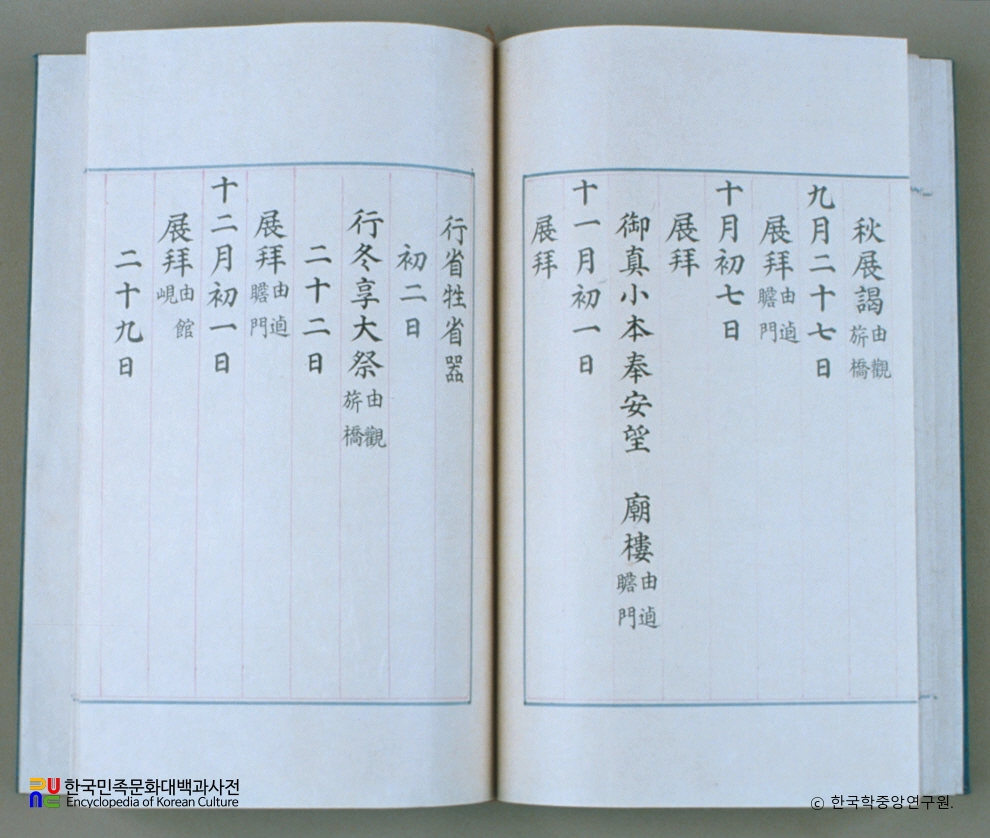 秋展謁由觀旂橋
九月二十七日
展拜由逌瞻門
十月初七日
展拜
御真小本奉安望 廟樓由逌瞻門
十一月初一日
展拜
行省牲省噐
初二日
行冬享大祭由觀旂橋
二十二日
展拜由逌瞻門
十二月初一日
展拜由館峴
二十九日
한국민족문화대백과사전
Encyclopedia of Korean Culture
© 한국학중앙연구원.